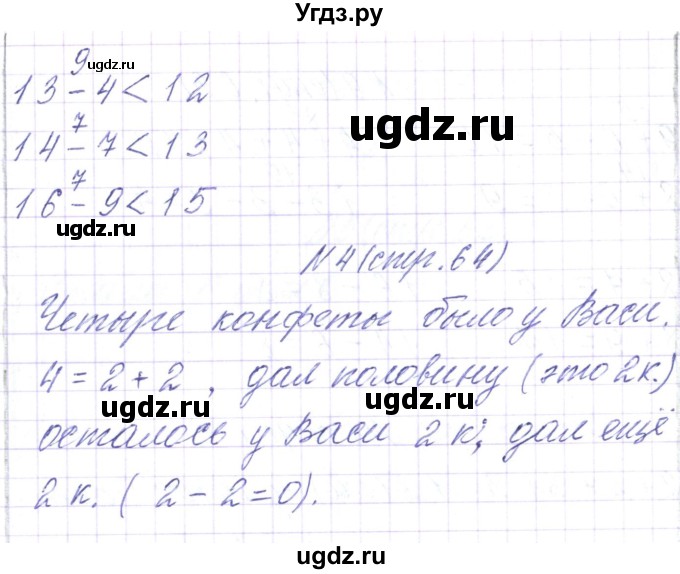 Угдз.ру
9
ugdz.ru
13 - 4 < 12
ugdz.ru
7
14 - 7 < 13
7
16 - 9 < 15
ugdz.ru
N4 (стр. 64)
Четыре конфеты было у Васи.
ugdz.ru
4 = 2 + 2, дал половину (это 2к.)
ugdz.ru ugdz.ru
осталось у Васи 2 к; дал ещё
2 к. (2 - 2 = 0).
ugdz.ru
ugdz.ru